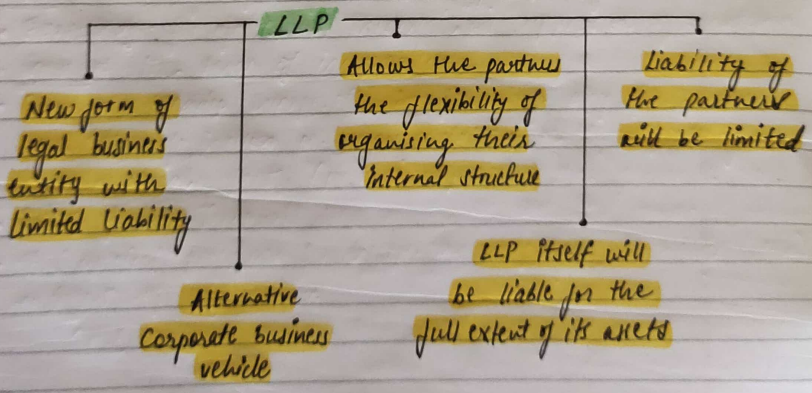 LLP
New form of
legal business
entity with
limited liability
Alternative
Corporate business
vehicle
Allows the partners
the flexibility of
organising their
internal structure
LLP itself will
be liable for the
full extent of its assets
Liability of
the partners
will be limited